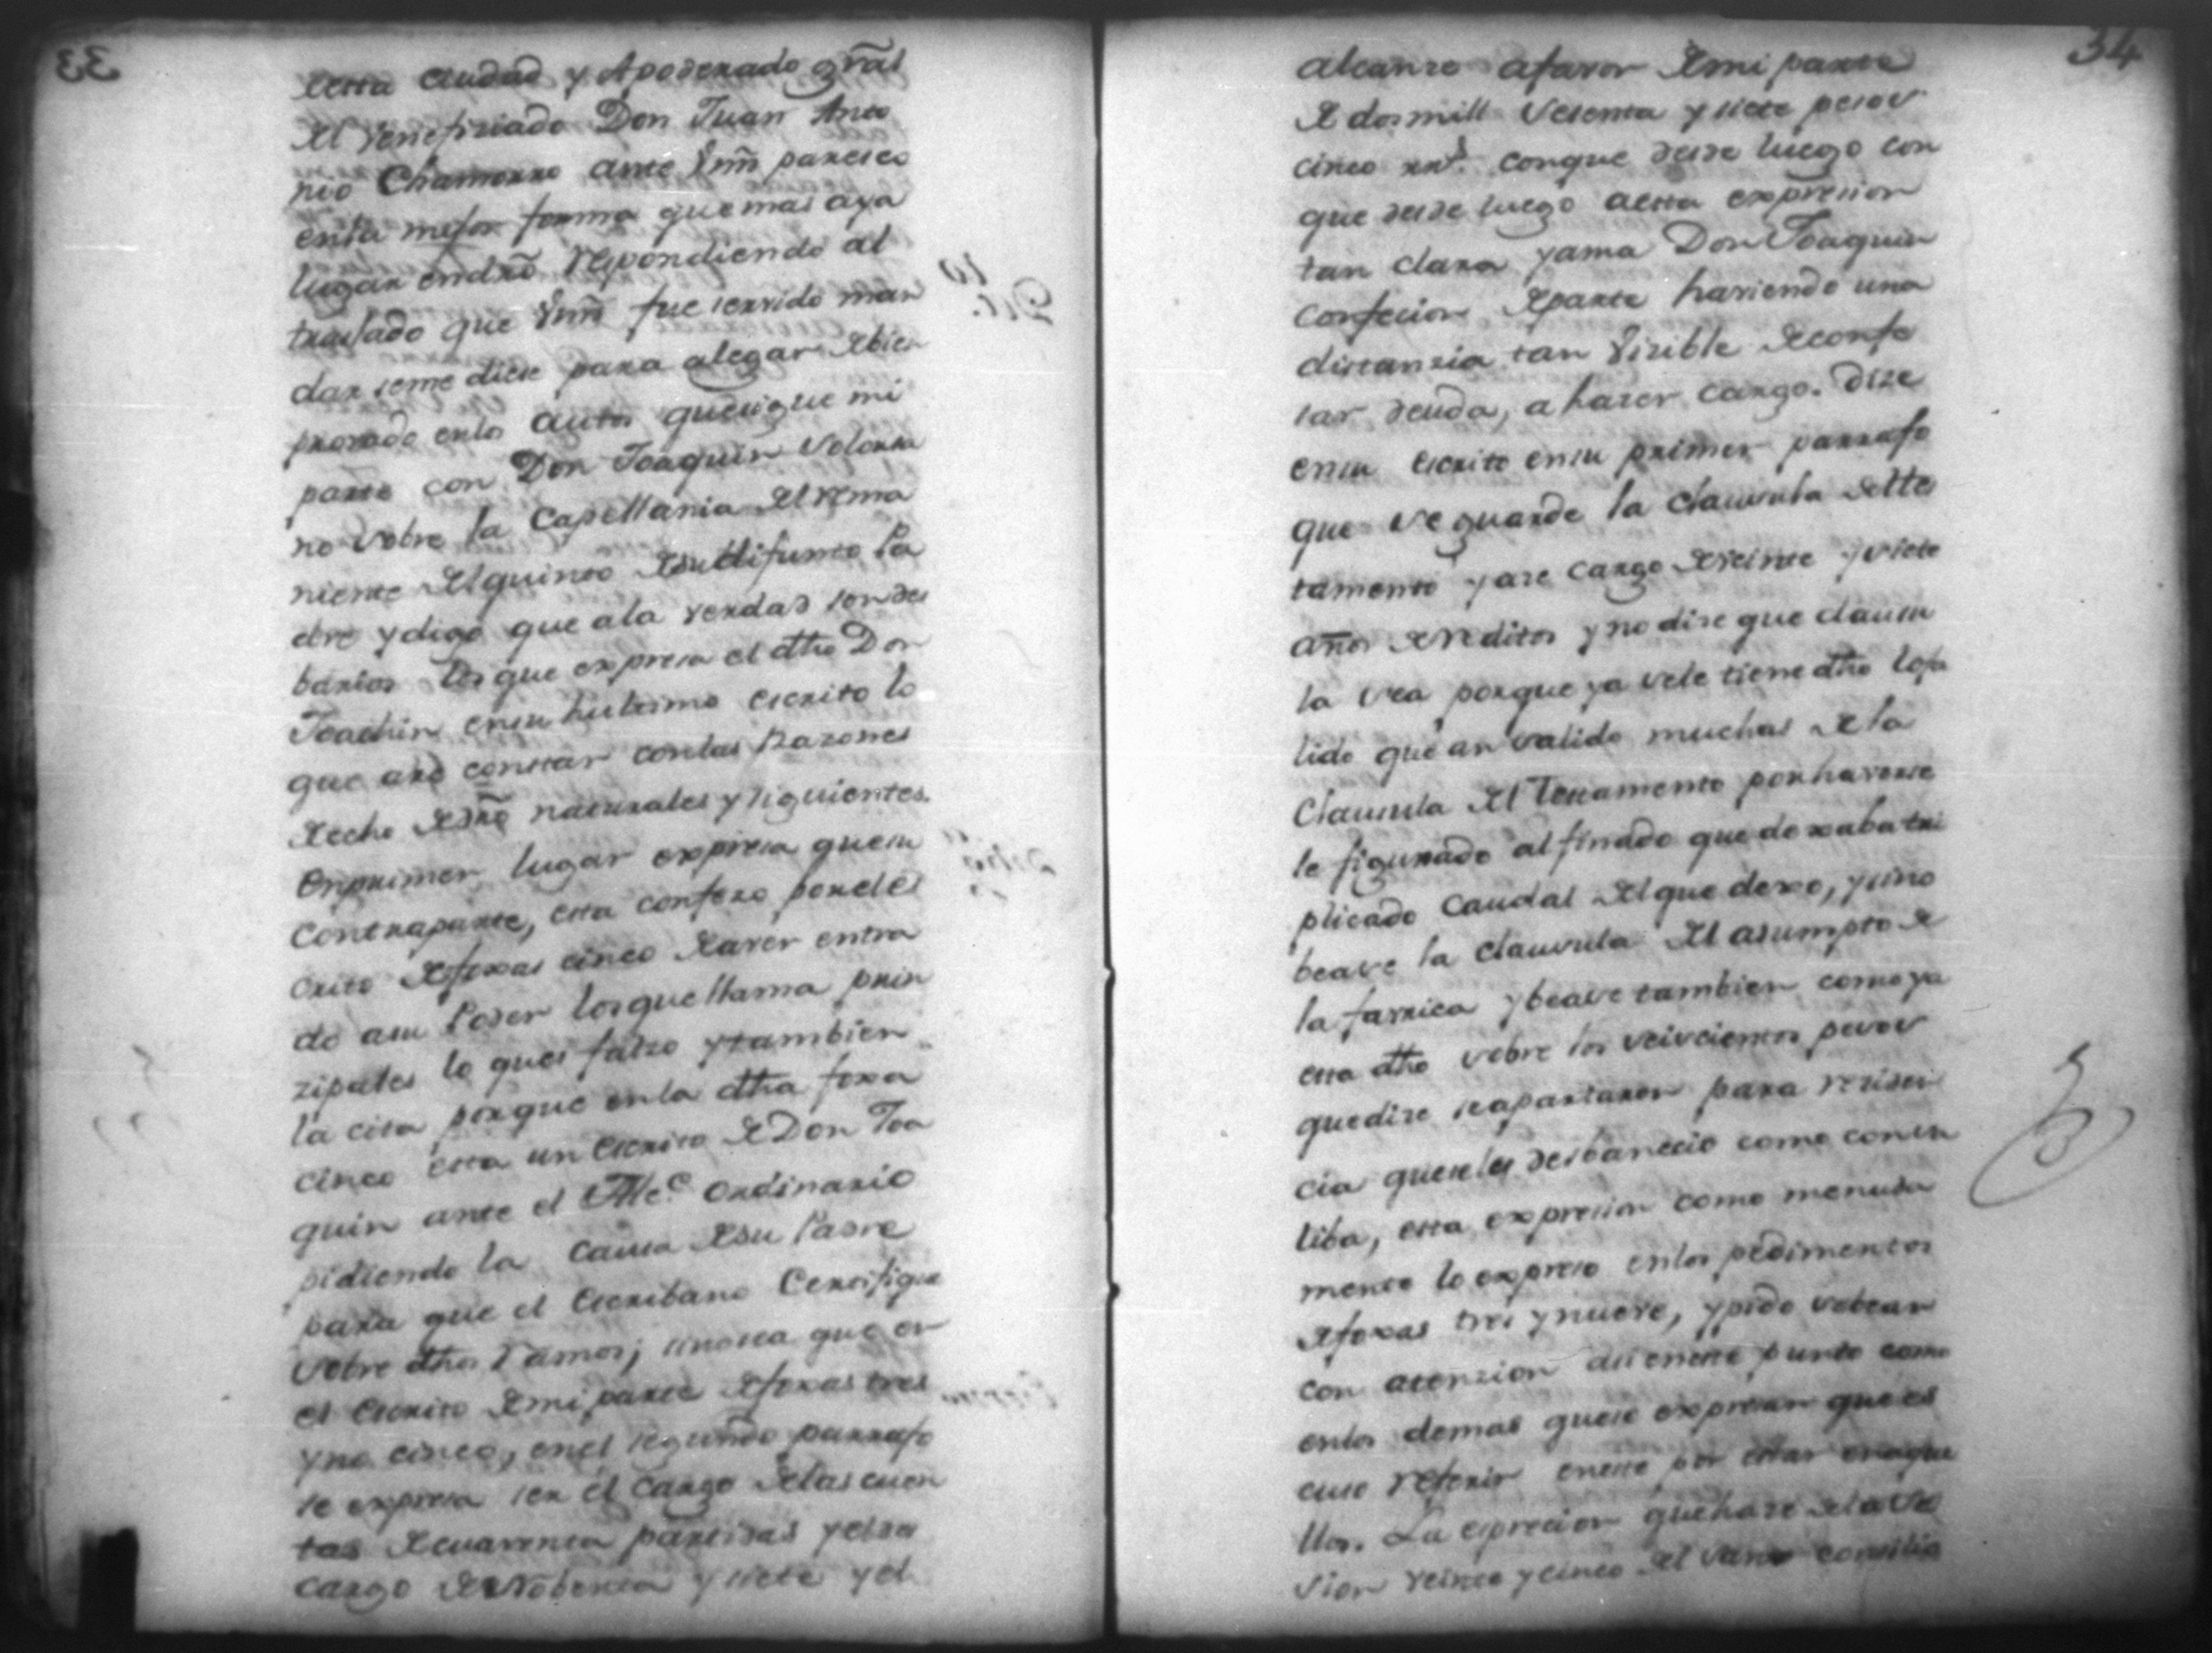 desta Ciudad y Apoderado grãl
del Venefiziado Don Juan Anto
nio Chamorro ante Vm̃ paresco
enla mejor forma que mas aya
lugar endrõ respondiendo al
traslado que Vm̃ fue servido man
dar seme diese para alegar debien
provado enlos autos quesigue mi
parte con Don Joaquin Solorza
no sobre la Capellania del rema
niente delquinto desu difunto Pa
dre ydigo que ala verdad son des
barios los que expresa el dho Don
Joachin ensu hultimo escrito lo
que aré constar conlas Razones
deecho dedrõ naturales y siguientes.
Enprimer lugar expresa quesu
Contraparte, esta confeso porel es
crito defoxas cinco deaver entra
do asu Poder losquellama prin
zipales lo ques falzo ytambien
la cita porque enla dha foxa
cinco esta un escrito de Don Joa
quin ante el Alc.e ordinario
pidiendo la causa desu Padre
para que el Escribano Certifique
sobre dhos ramos; sinosea que es
el escrito demi parte defoxas tres
yno cinco, enel segundo parrafo
se expresa ser el cargo delas cuen
tas decuarenta partidas yelsu
cargo denobenta y siete yel
34
alcanze afavor demi parte
de dosmill sesenta y siete pesos
cinco rr.s conque desde luego con
que desde luego aesta expresion
tan clara yama Don Joaquin
confesion departe hasiendo una
distanzia tan visible deconfe
sar deuda, a hazer cargo. Dize
ensu escrito ensu primer parrafo
que se guarde la clausula deltes
tamento y aze cargo deveinte y siete
años dereditos y no dise que clausu
la sea porque ya sele tiene dho lofa
lido que an salido muchas dela
Clausula del Testamento porhaverse
le figurado al finado que dexaba tri
plicado caudal delque dexo, y sino
bease la clausula del asumpto de
la farrica ybease tambien como ya
esta dho sobre los seiscientos pesos
quedize seapartaron para residen
cia queseles desbanecio como consu
liba, esta expresion como menuda
mente lo expreso enlos pedimentos
defoxas tres ynueve, ypido sebean
con atenzion asi eneste punto como
enlos demas quese expresan que es
cuso referir eneste por estar enaque
llos. La espresion quehaze delase
sion veinte ycinco del santo consilio